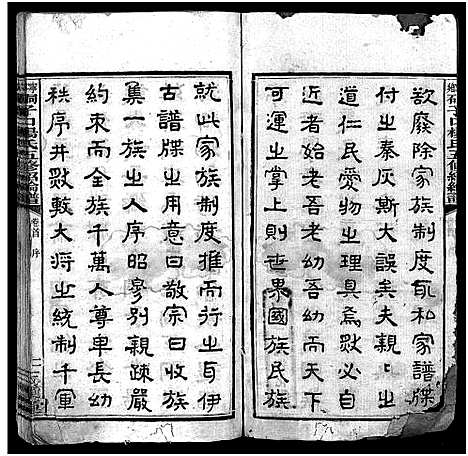 欲廢除家族制度取私家譜牒
付之秦灰斯大誤矣夫親〻之
仁民愛物之理具焉欲必自
近者始老吾老幼吾幼吾
可運之掌上則世界國族民族
就此家族制度推行之与伊
古譜牒之用意曰敬宗曰收族
集一族之人序昭穆別親疎嚴
約束而全族千萬人尊卑長幼
秩序井然較大將之統制千軍
卷首 序